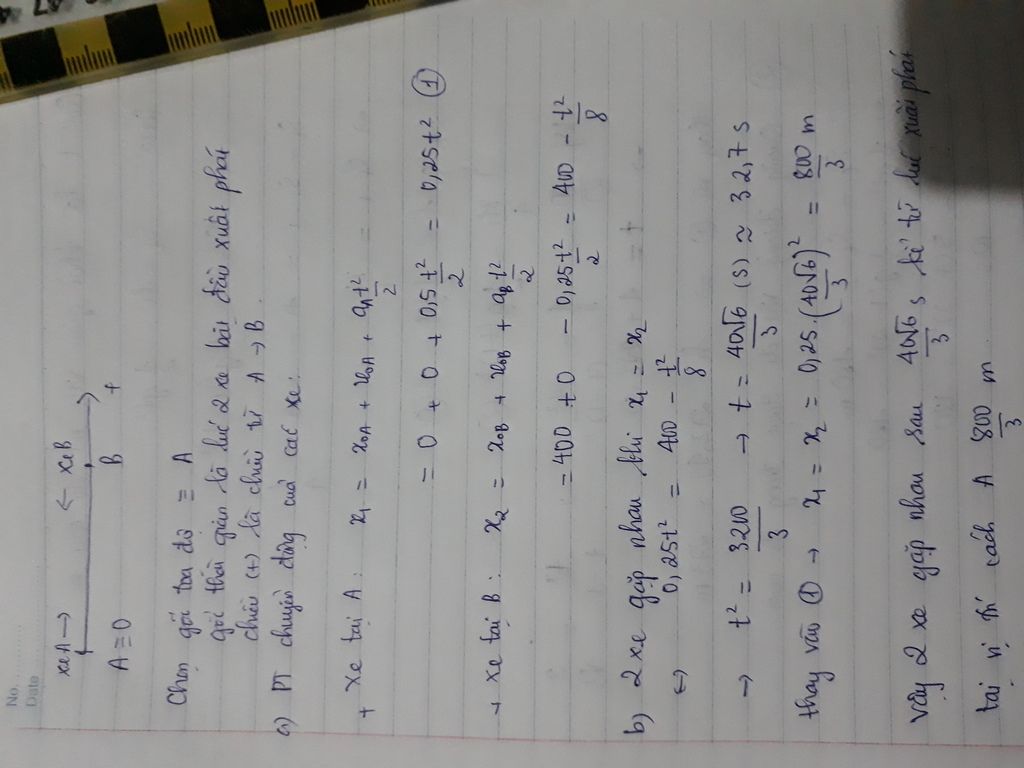 No.
Date
xe A → ← xe B
A ≡ O B +
Chọn gốc tọa độ ≡ A
gốc thời gian là lúc 2 xe bắt đầu xuất phát
chiều (+) là chiều từ A → B
a) PT chuyển động của các xe:
+ xe tại A: x₁ = x₀A + v₀A + a₁t²/2
= 0 + 0 + 0,5t²/2 = 0,25t² ①
+ xe tại B: x₂ = x₀B + v₀B + aBt²/2
= 400 + 0 - 0,25t²/2 = 400 - t²/8
b) 2 xe gặp nhau khi x₁ = x₂
↔ 0,25t² = 400 - t²/8
→ t² = 3200/3 → t = 40√6/3 (s) ≈ 32,7 s
thay vào ① → x₁ = x₂ = 0,25.(40√6/3)² = 800/3 m
vậy 2 xe gặp nhau sau 40√6/3 s kể từ lúc xuất phát
tại vị trí cách A 800/3 m